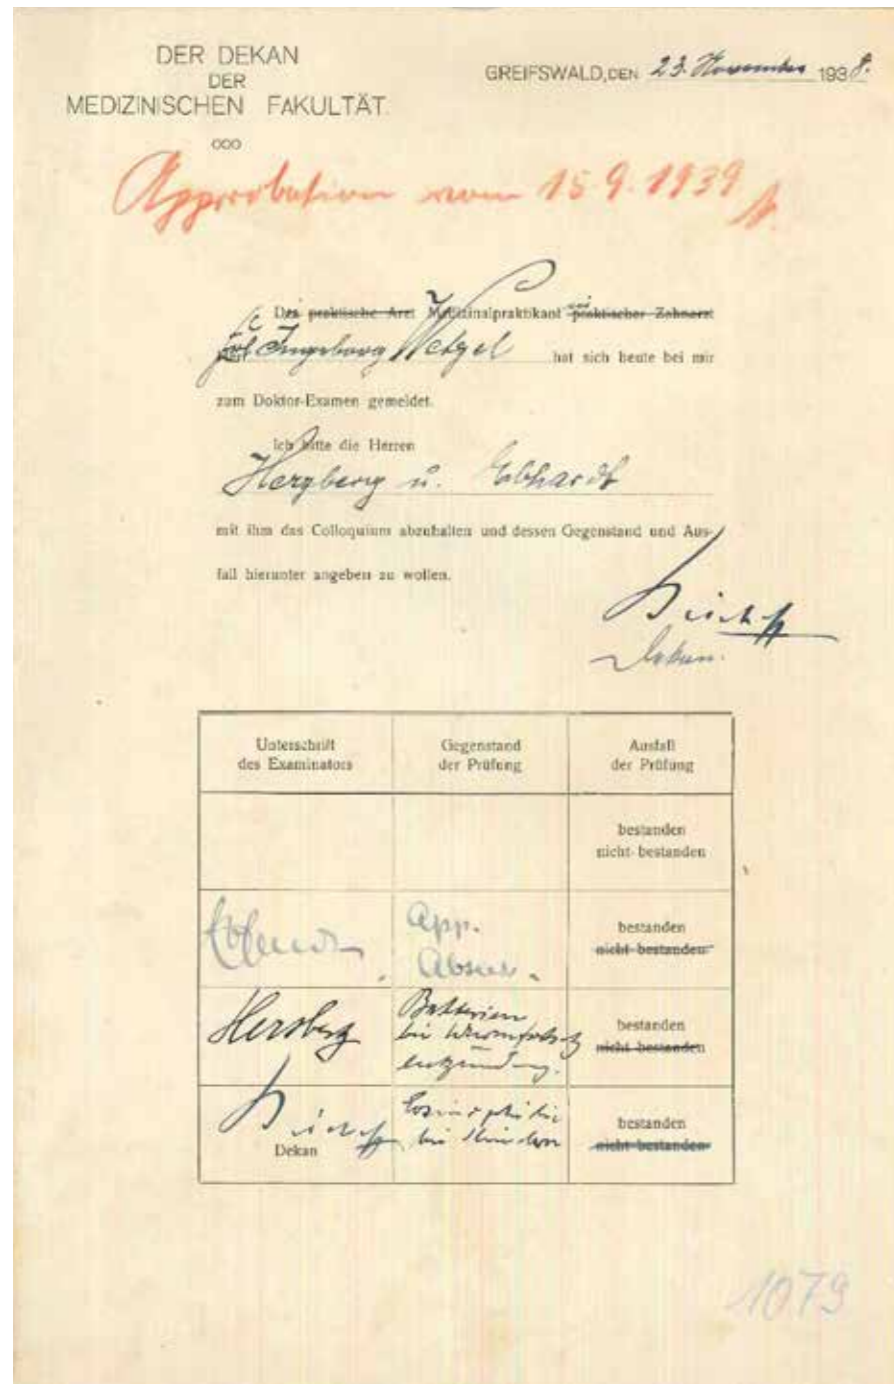 DER DEKAN
DER
MEDIZINISCHEN FAKULTÄT.
GREIFSWALD, DEN 23. November 1938.
ooo
Approbation vom 15.9.1939
Die praktische Arzt Medizinalpraktikant praktischer Zahnarzt
Frl. Ingeborg Wetzel hat sich heute bei mir
zum Doktor-Examen gemeldet.
Ich bitte die Herren
Herzberg u. Ebhardt
mit ihm das Colloquium abzuhalten und dessen Gegenstand und Aus-
fall hierunter angeben zu wollen.
Dekan.
Unterschrift
des Examinators
Gegenstand
der Prüfung
Ausfall
der Prüfung
bestanden
nicht-bestanden
App.
bestanden
nicht-bestanden
Herzberg
Bakterien
bei Wurmfortsatz
entzündung.
bestanden
nicht-bestanden
Dekan
Eosinophilie
bei Kindern
bestanden
nicht-bestanden
1079